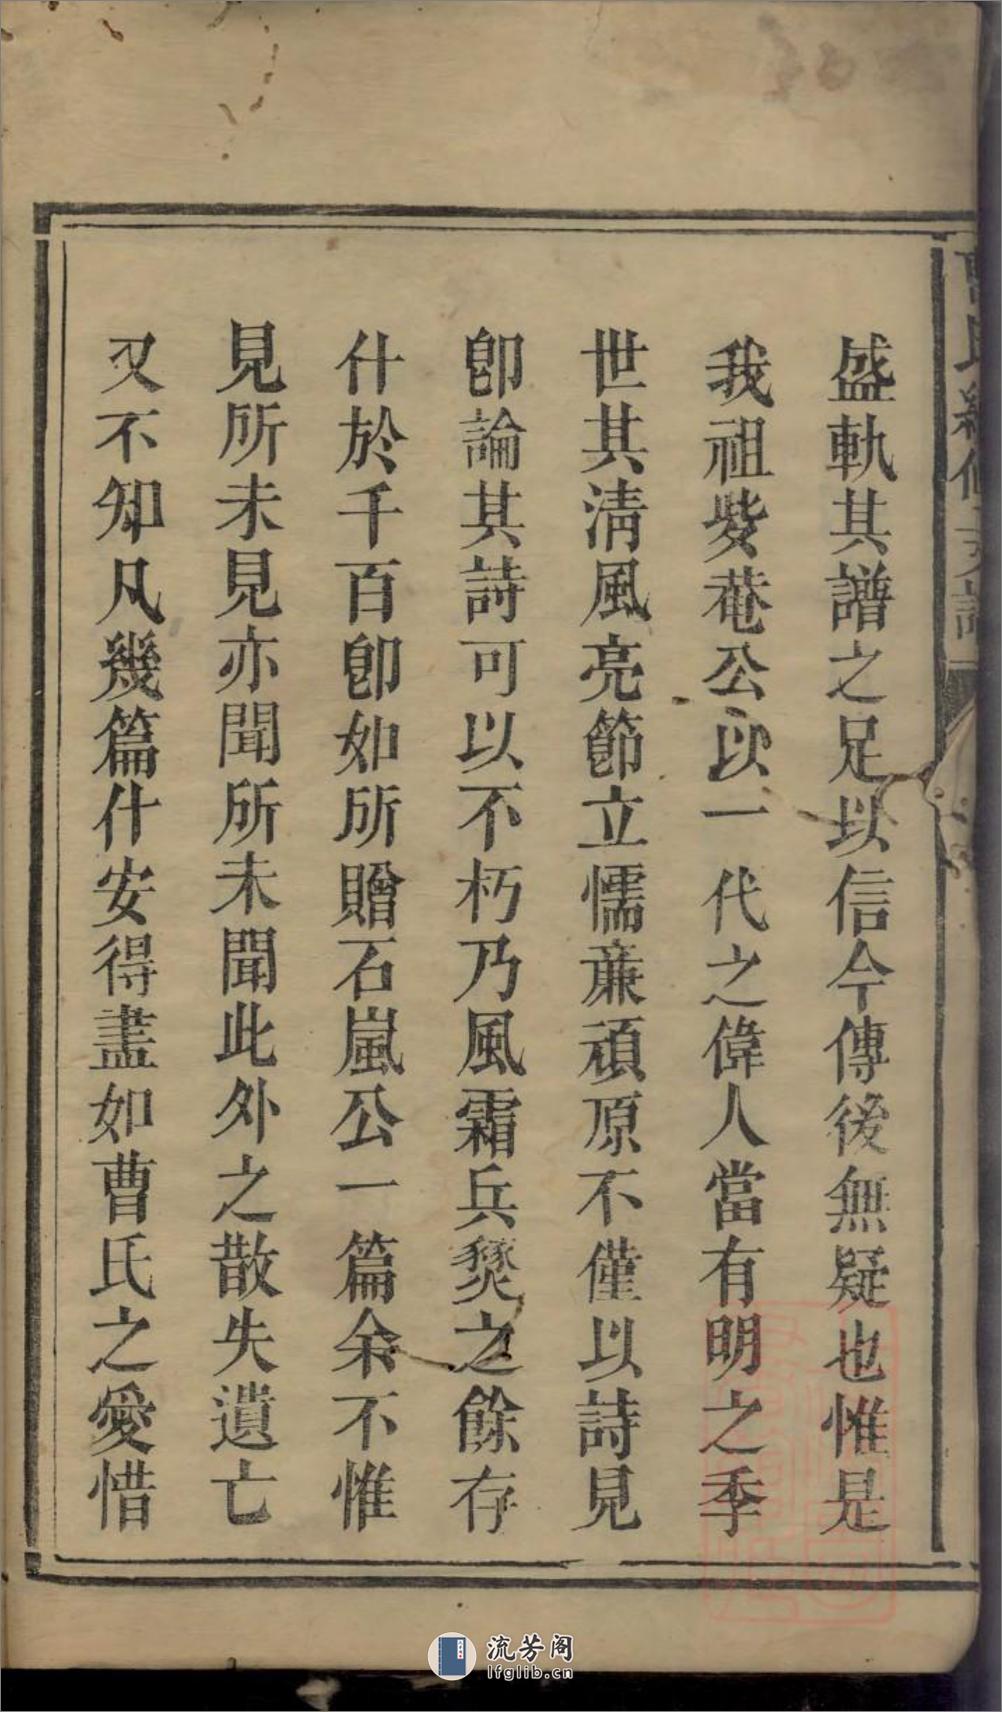 盛軌其譜之足以信今傳後無疑也惟是
我祖㱔菴公以一代之偉人當有明之季
世其清風亮節立懦亷頑原不僅以詩見
卽論其詩可以不朽乃風霜兵燹之餘存
什於千百卽如所贈石嵐公一篇余不惟
見所未見亦聞所未聞此外之散失遺亡
又不知凡幾篇什安得盡如曹氏之愛惜
流芳阁
lfglib.cn